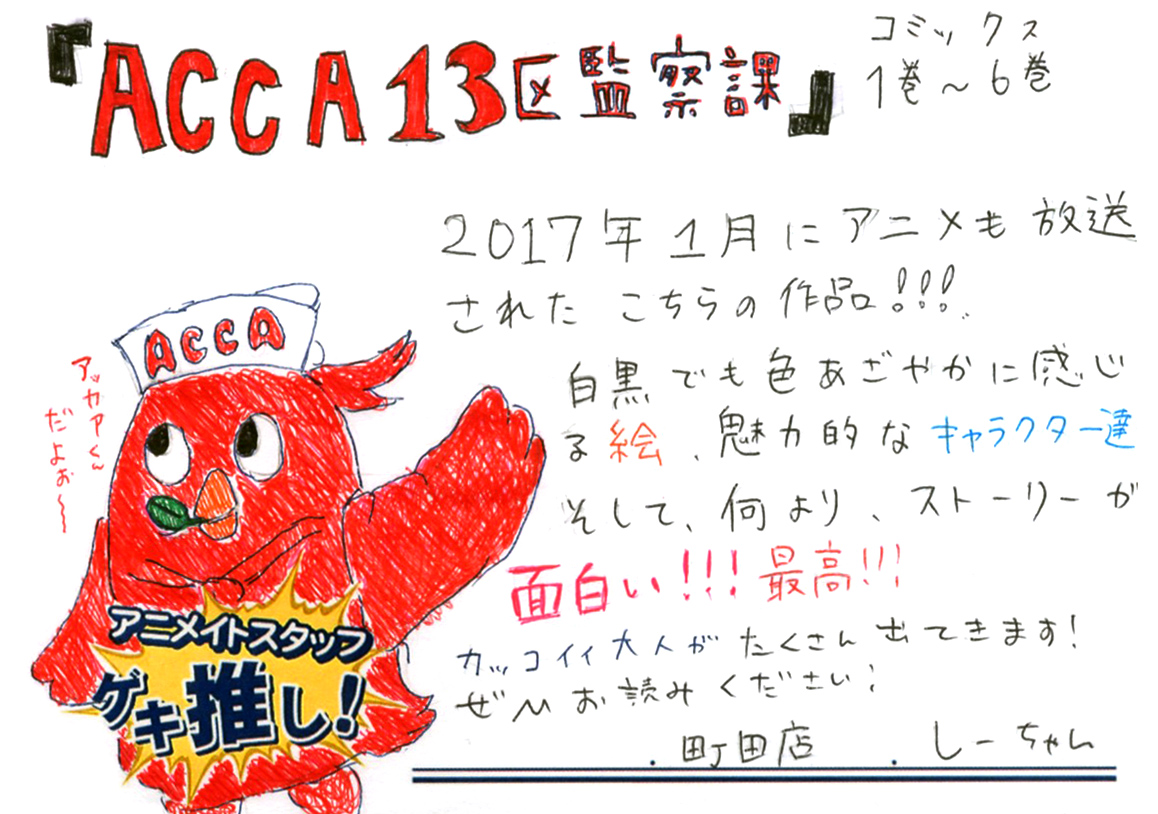 『ACCA13区監察課』
コミックス
1巻～6巻
2017年1月にアニメも放送
された こちらの作品!!!
白黒でも色あざやかに感じ
る絵、魅力的なキャラクター達
そして、何より、ストーリーが
面白い!!!最高!!!
カッコイイ大人がたくさん出てきます!
ぜひお読みください!
町田店 しーちゃん
ACCA
アッカアくん
だよぉ～
アニメイトスタッフ
ゲキ推し!